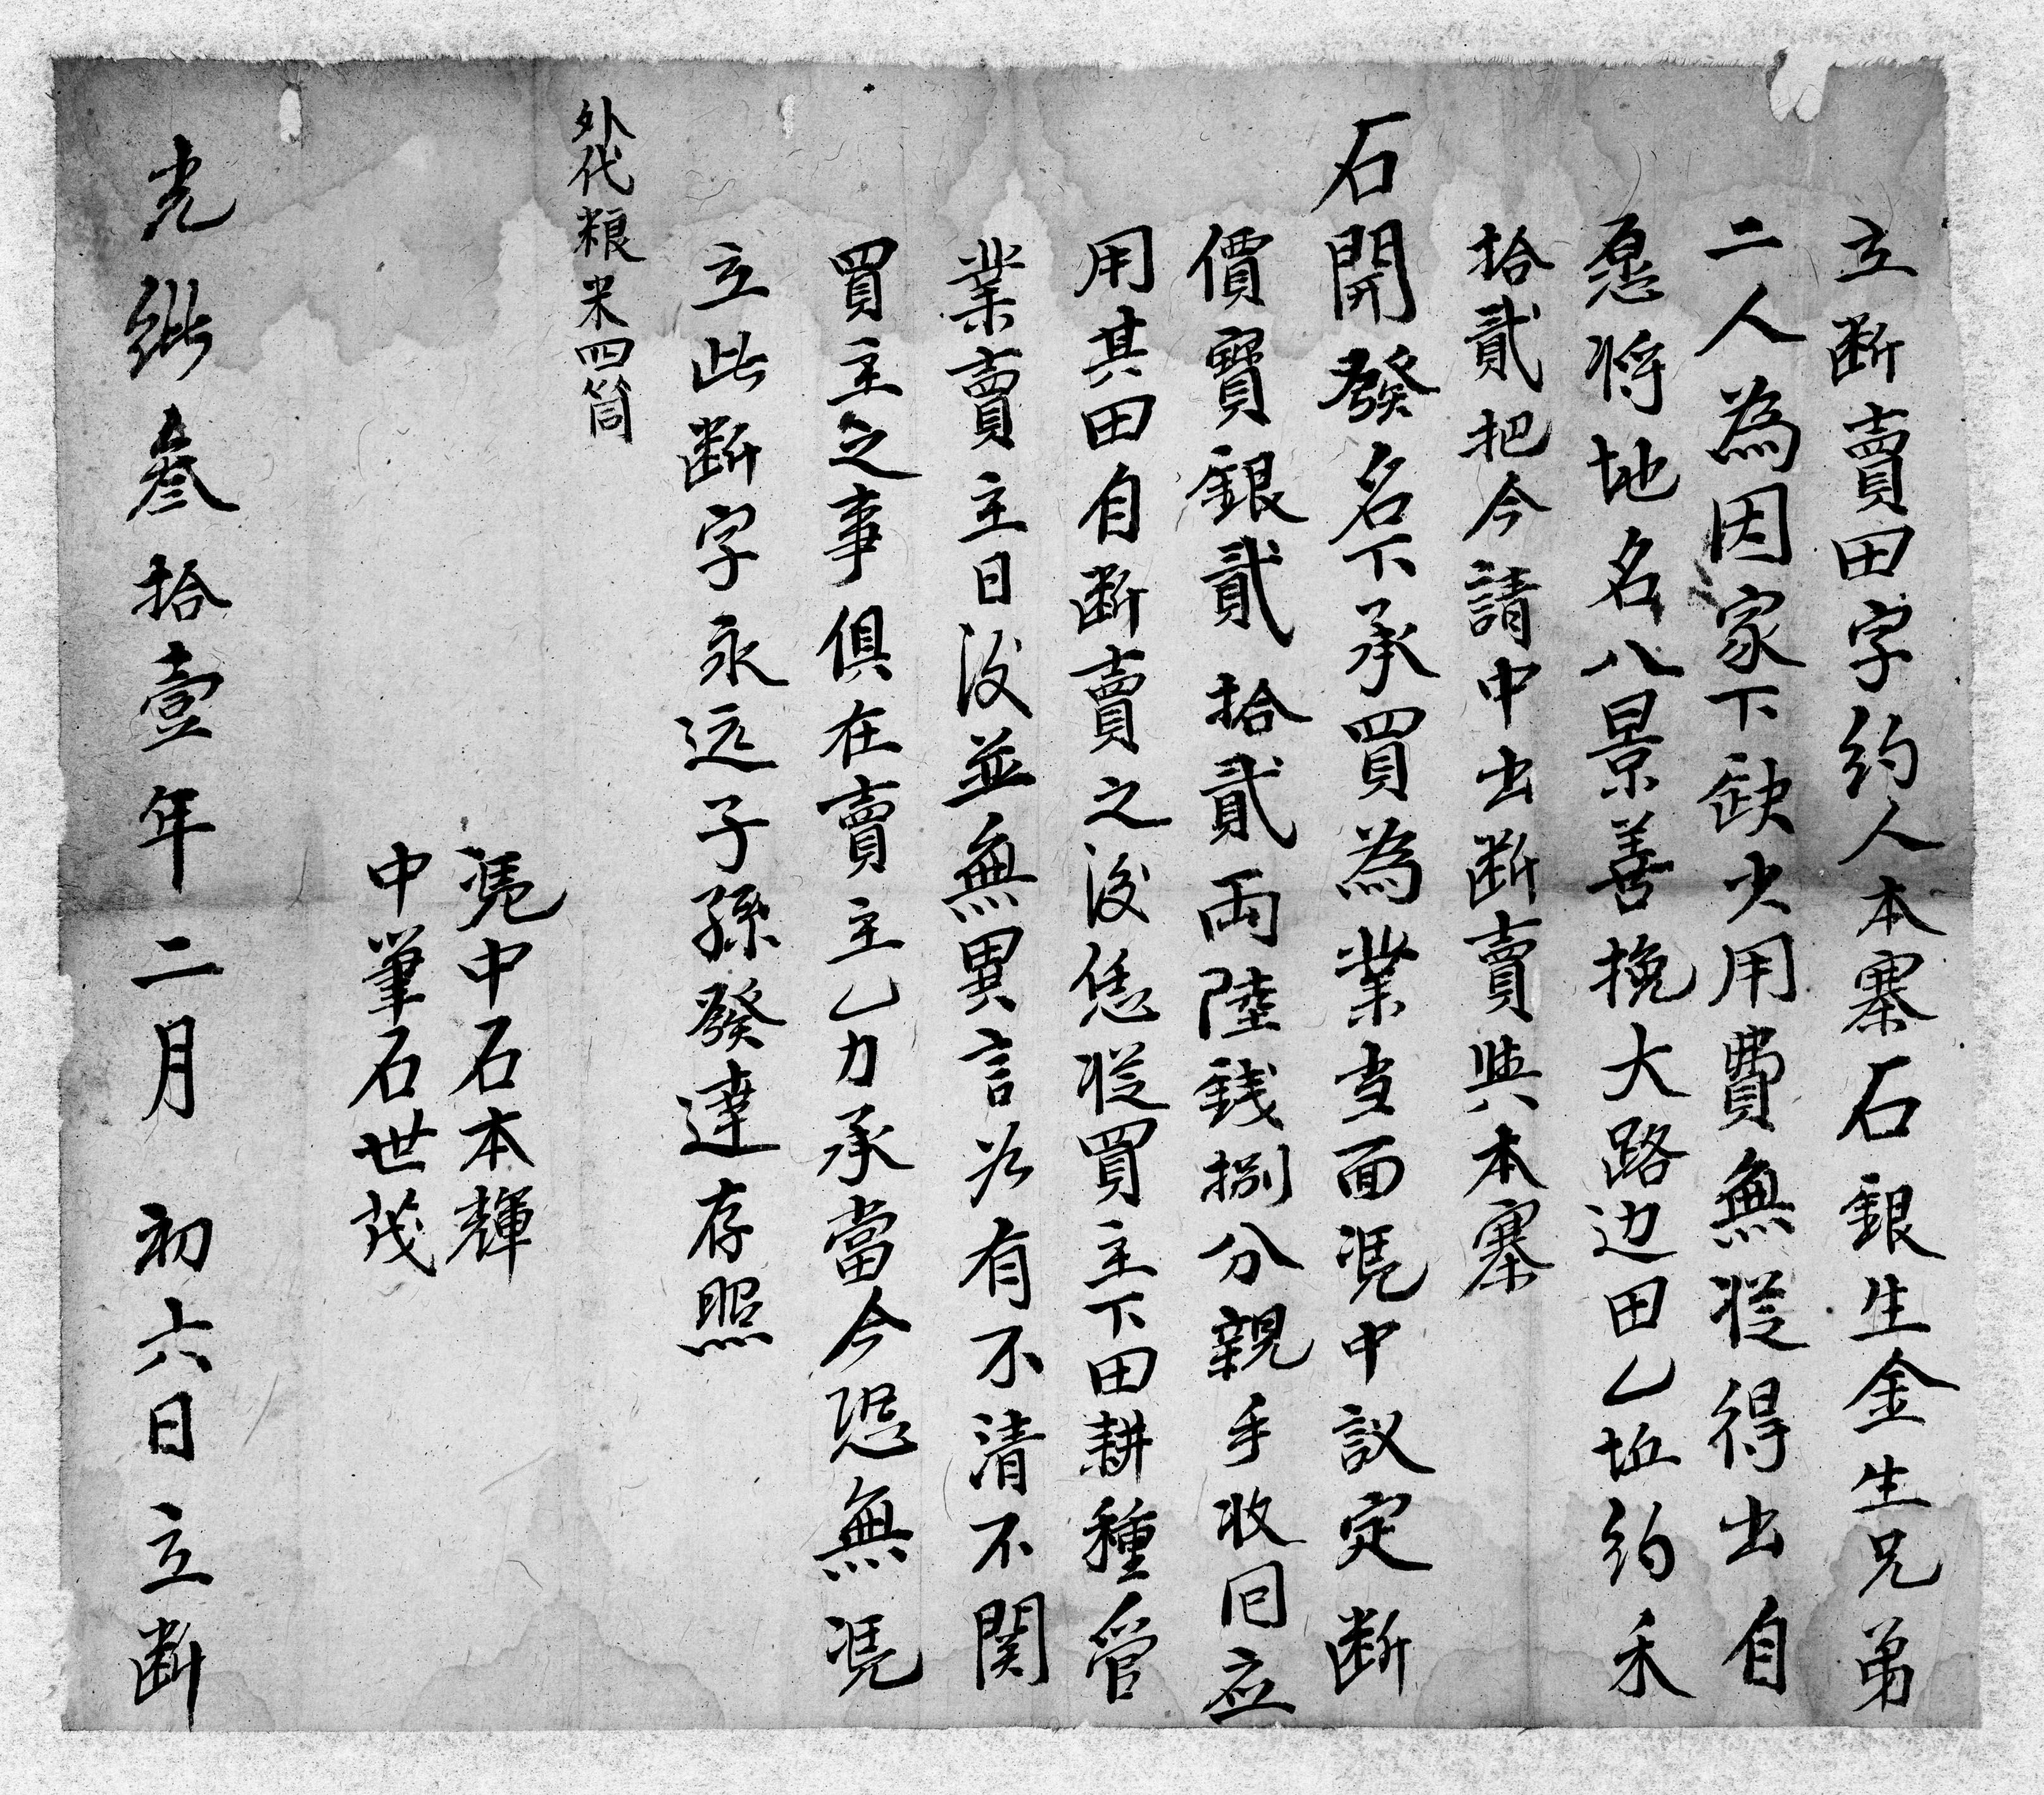 立断賣田字約人本寨石銀生金生兄弟
二人為因家下缺少用費無從得出自
愿将地名八景善挽大路边田乙坵約禾
拾貳把今請中出断賣與本寨
石開發名下承買為業当面凴中議定断
價寶銀貳拾貳両陸銭捌分親手收囘应
用其田自断賣之後恁從買主下田耕種管
業賣主日後並無異言若有不清不関
買主之事俱在賣主乙力承當今恐無凴
立此断字永远子孫發達存照
外代粮米四筒
凴中石本輝
中筆石世茂
光緒叁拾壹年二月初六日立断